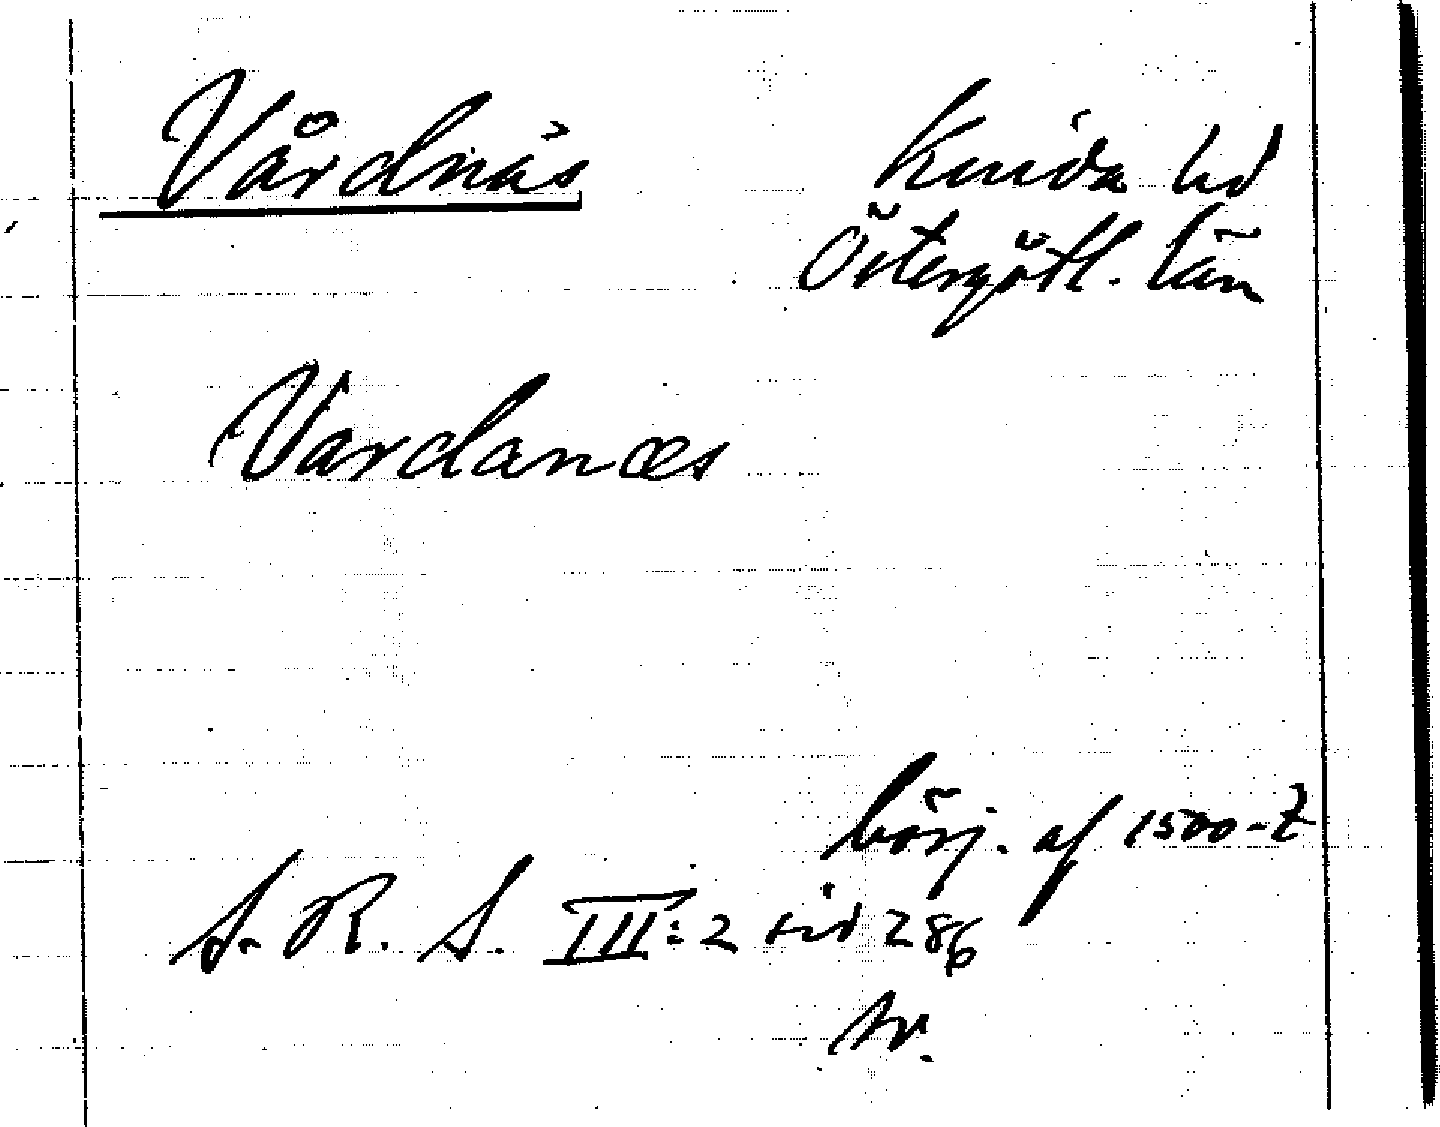 Vårdnäs
Kinda hd
Östergötl. län
Vardanæs
börj. af 1500-t
S. R. S. III:2 sid 286
tr.